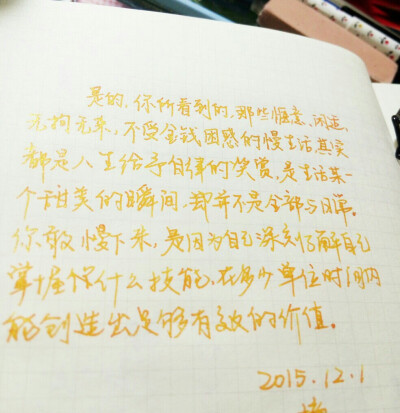 是的,你所看到的,那些惬意、闲适,
无拘无束,不受金钱困惑的慢生活其实
都是人生给予自律的奖赏,是生活某一
个甜美的瞬间,却并不是全部与日常。
你敢慢下来,是因为自己深刻了解自己
掌握你什么技能,在多少单位时间内
能创造出足够有效的价值。
2015.12.1